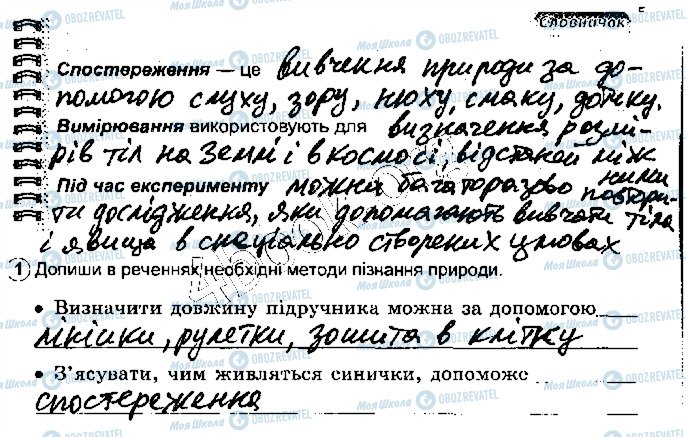 5
Словничок
Спостереження — це вивчення природи за до-
помогою слуху, зору, нюху, смаку, дотику.
Вимірювання використовують для визначення розмі-
рів тіл на Землі і в космосі, відстаней між
ними
Під час експерименту можна багаторазово повтори-
ти дослідження, яки допомагають вивчати тіла
і явища в спеціально створених умовах
1 Допиши в реченнях необхідні методи пізнання природи.
• Визначити довжину підручника можна за допомогою
лінійки, рулетки, зошита в клітку
• З'ясувати, чим живляться синички, допоможе
спостереження